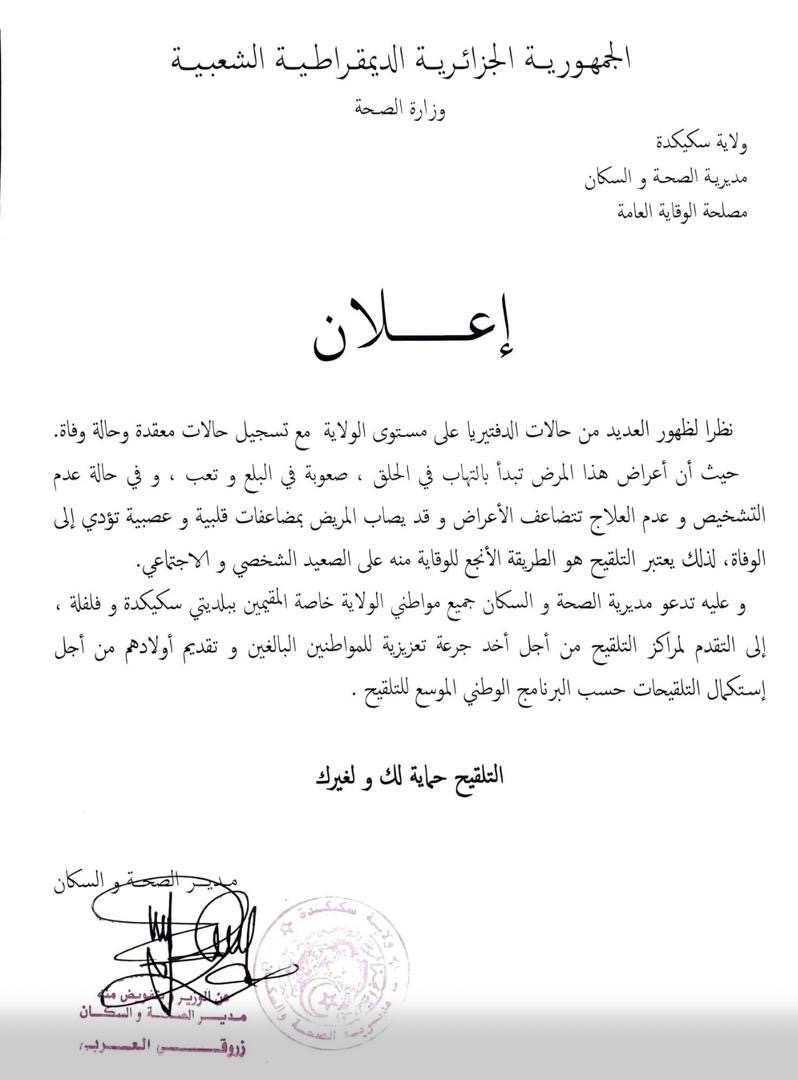 الجمهورية الجزائرية الديمقراطية الشعبية
وزارة الصحة
ولاية سكيكدة
مديرية الصحة و السكان
مصلحة الوقاية العامة
إعلان
نظرا لظهور العديد من حالات الدفتيريا على مستوى الولاية مع تسجيل حالات معقدة وحالة وفاة.
حيث أن أعراض هذا المرض تبدأ بالتهاب في الحلق ، صعوبة في البلع و تعب ، و في حالة عدم
التشخيص و عدم العلاج تتضاعف الأعراض و قد يصاب المريض بمضاعفات قلبية و عصبية تؤدي إلى
الوفاة، لذلك يعتبر التلقيح هو الطريقة الأنجع للوقاية منه على الصعيد الشخصي و الاجتماعي.
و عليه تدعو مديرية الصحة و السكان جميع مواطني الولاية خاصة المقيمين ببلديتي سكيكدة و فلفلة ،
إلى التقدم لمراكز التلقيح من أجل أخد جرعة تعزيزية للمواطنين البالغين و تقديم أولادهم من أجل
إستكمال التلقيحات حسب البرنامج الوطني الموسع للتلقيح .
التلقيح حماية لك و لغيرك
مدير الصحة و السكان
ولاية سكيكدة
مديرية الصحة والسكان
عن الوزير و بتفويض منه
مدير الصحة و السكان
زروقي العربي